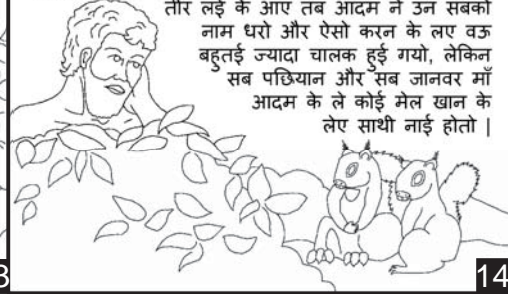 तीर लई के आए तब आदम ने उन सबको
नाम धरो और ऐसो करन के लए वऊ
बहुतई ज्यादा चालक हुई गयो, लेकिन
सब पछियान और सब जानवर माँ
आदम के ले कोई मेल खान के
लेए साथी नाई होतो |
3
14